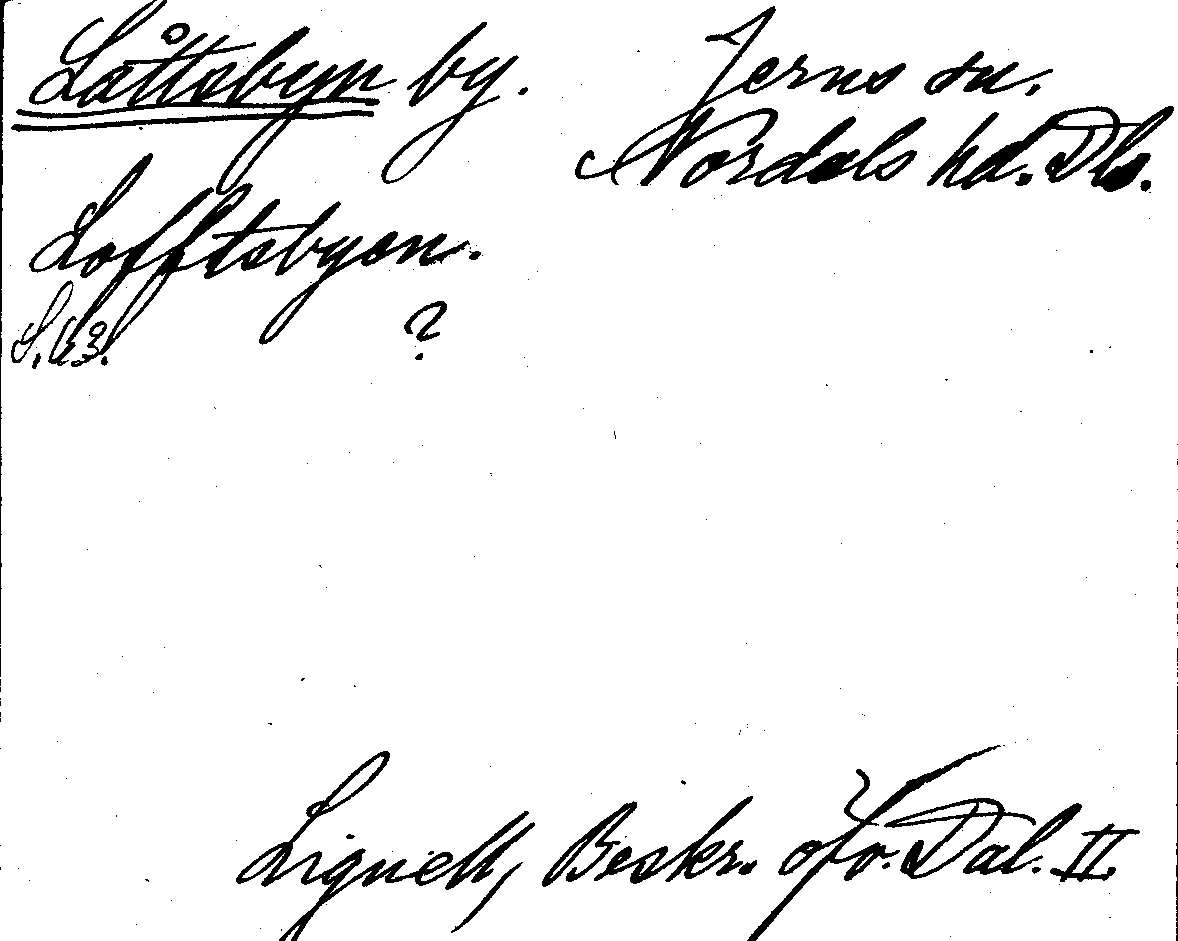 Låttsbyn by. Jerns sn.
Nordals hd. Dls.
Lofftsbyen.
S. 63. ?
Lignell, Beskr. öfv. Dal. II.